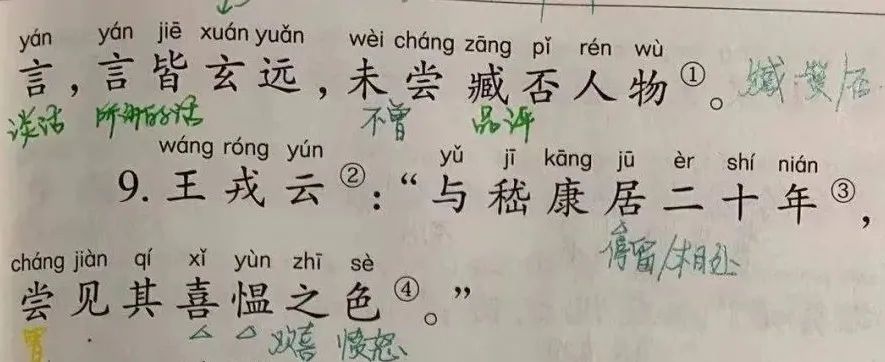 yán yán jiē xuán yuǎn wèi cháng zāng pǐ rén wù
言，言皆玄远，未尝臧否人物①。
谈话 所讲的话 不曾 品评
wáng róng yún yǔ jī kāng jū èr shí nián
9. 王戎云②：“与嵇康居二十年③，
停留/相处
cháng jiàn qí xǐ yùn zhī sè
尝见其喜愠之色④。”
欢喜 愤怒